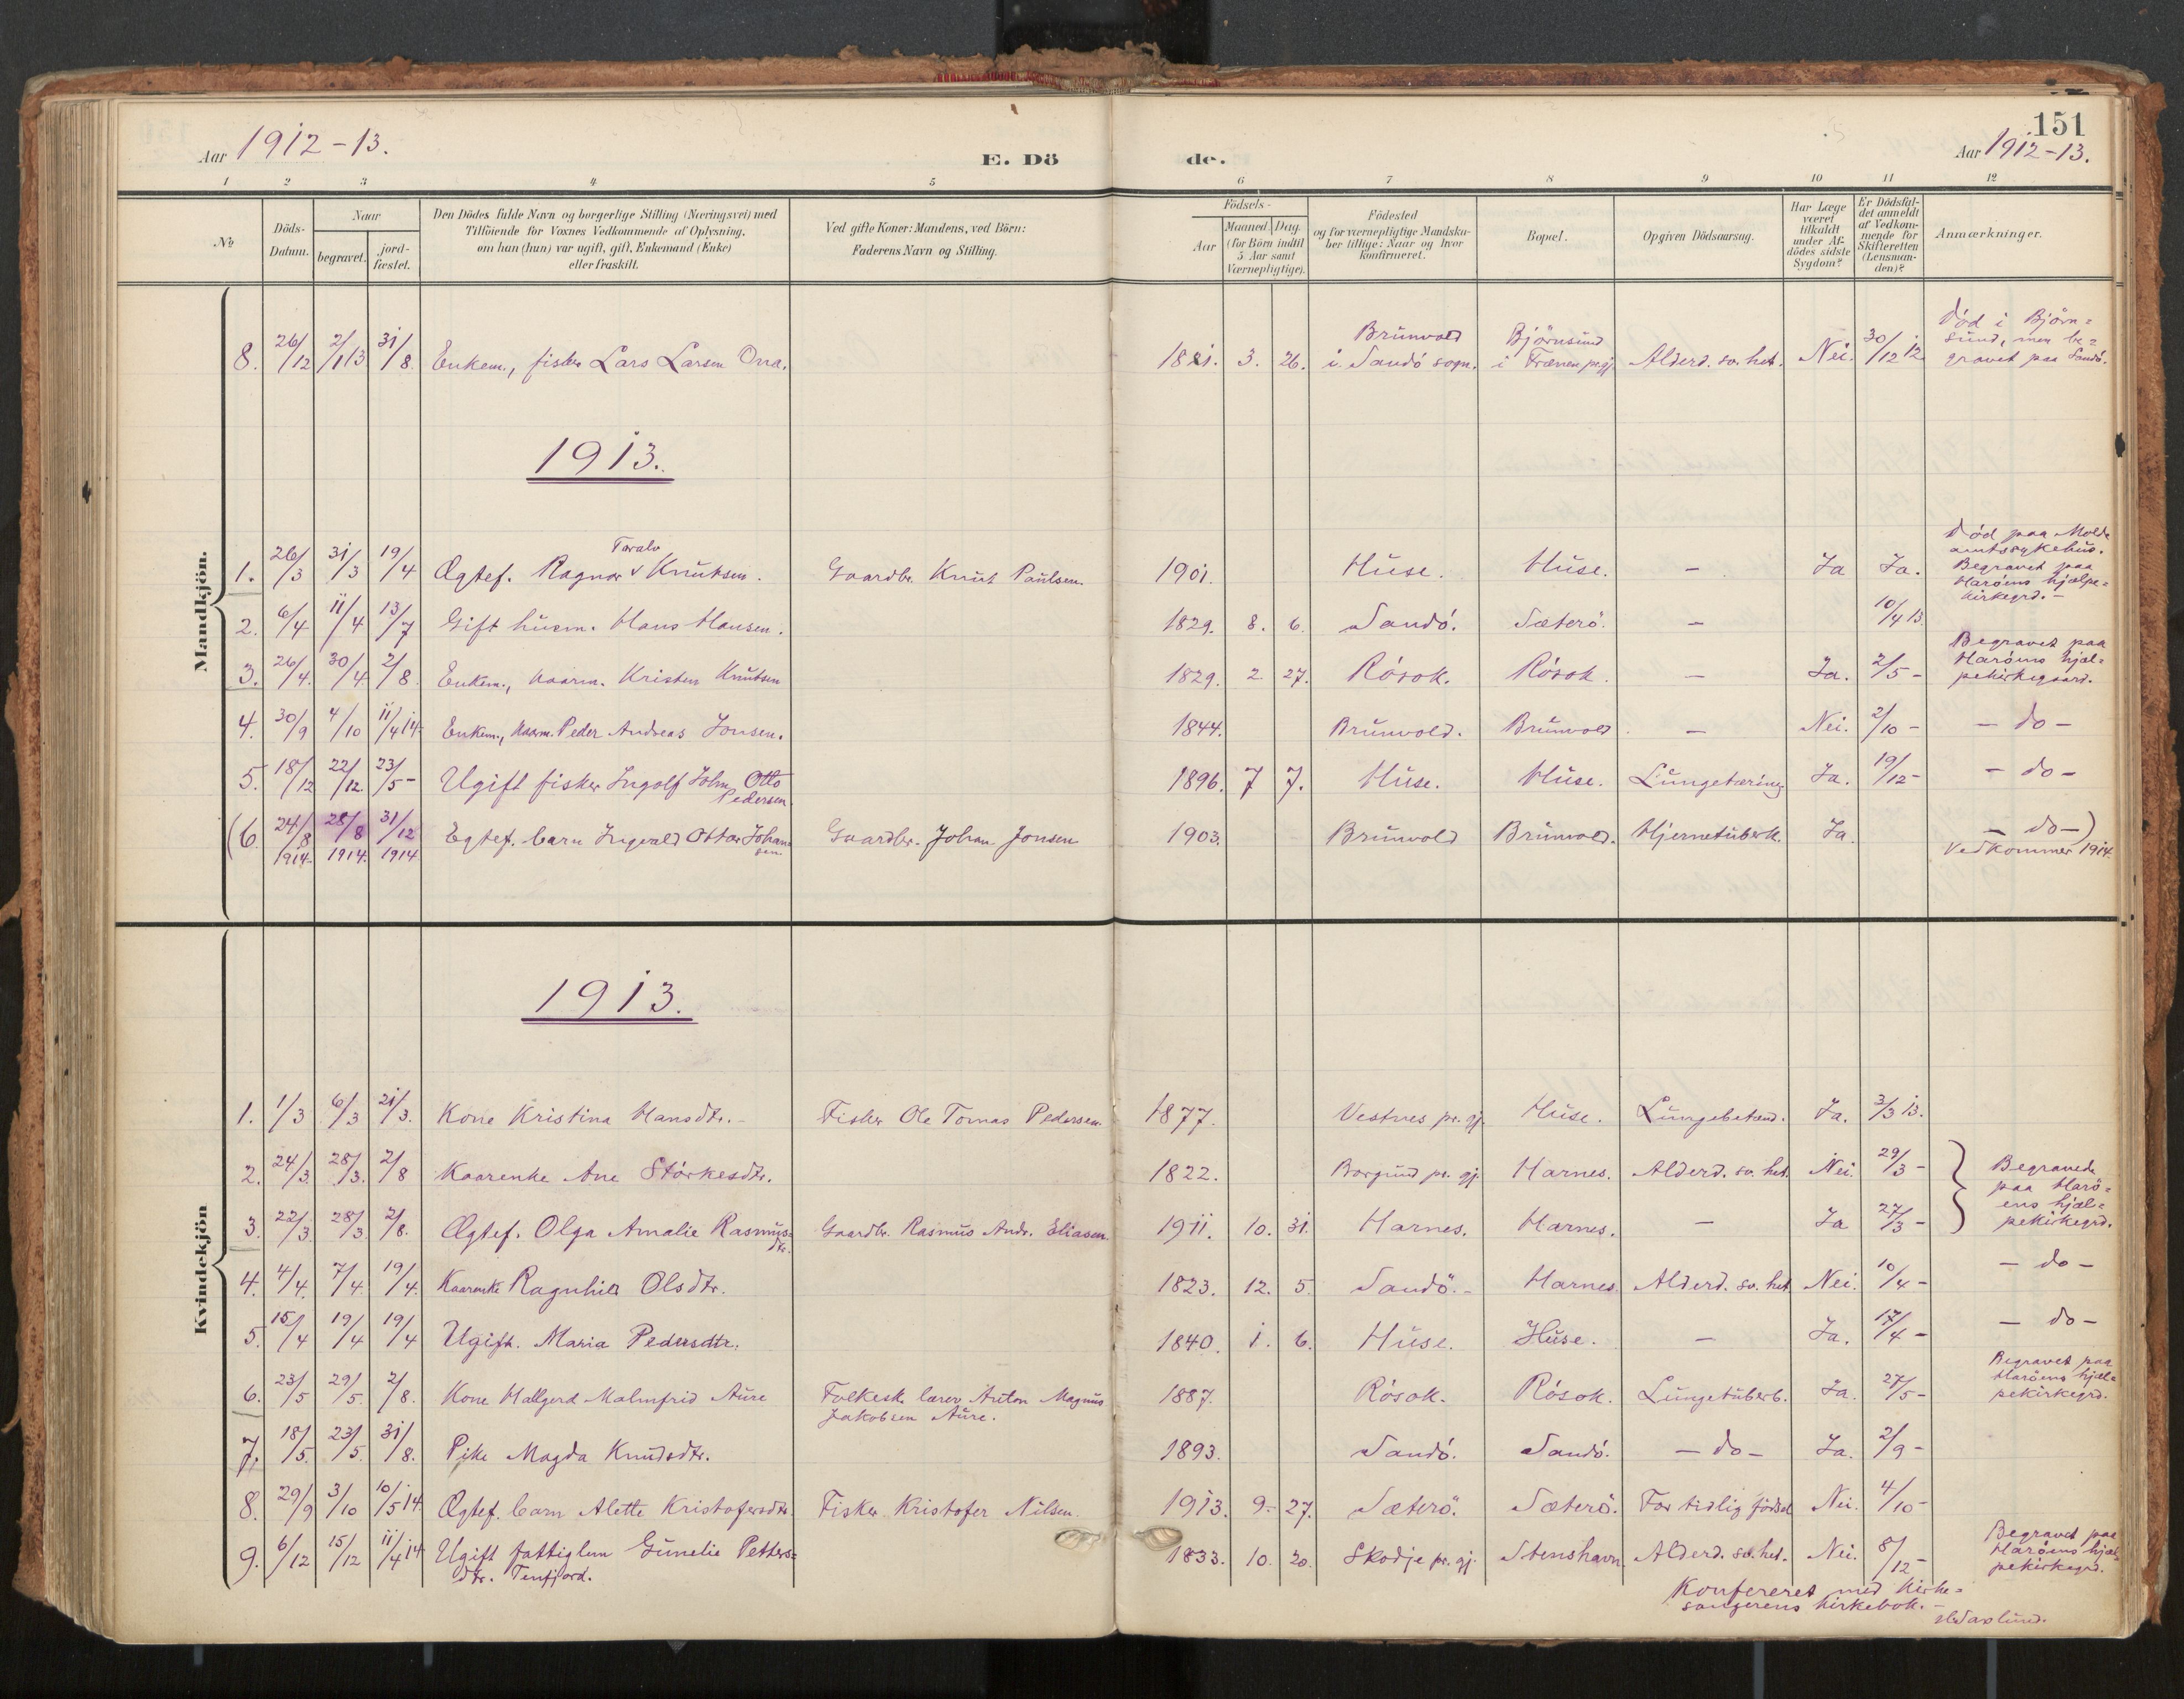 151
Aar 1912-13. E. Dö de. Aar 1912-13.
1 2 3 4 5 6 7 8 9 10 11 12
No Döds-Datum. Naar begravet. jord-fæstet. Den Dödes fulde Navn og borgerlige Stilling (Næringsvei) med Tilföiende for Voxnes Vedkommende af Oplysning, om han (hun) var ugift, gift, Enkemand (Enke) eller fraskilt. Ved gifte Koner: Mandens, ved Börn: Faderens Navn og Stilling. Födsels- Aar Maaned. Dag. (for Börn indtil 5 Aar samt Værnepligtige). Födested og for værnepligtige Mandska-ber tillige: Naar og hvor konfirmeret. Bopæl. Opgiven Dödsaarsag. Har Læge været tilkaldt under Af-dödes sidste Sygdom? Er Dödsfal-det anmeldt af Vedkom-mende for Skifteretten (Lensman-den)? Anmærkninger.
Mandkjön.
8. 26/12 2/1 13 31/8. Enkem., fisker Lars Larsen Ona. 1821. 3. 26. Brunvold i Sandö sogn. Björnsund i Frænen pr.gj. Alderd. sv. het. Nei. 30/12 12 Död i Björn=sund, men be=gravet paa Sandö.
1913.
1. 26/3 31/3 19/4 Ægtef. Ragnar Toralv Knutsen. Gaardbr. Knut Paulsen. 1901. Huse. Huse. - Ja Ja. Död paa Molde amtssykehus. Begravet paa Haröens hjælpe=kirkegrd. -
2. 6/4 11/4 13/7 Gift husm. Hans Hansen. 1829. 8. 6. Sandö. Sæterö. - 10/4 13.
3. 26/4. 30/4. 2/8. Enkem., kaarm. Kristen Knutsen 1829. 2 27. Rösok. Rösok. - Ja. 2/5 - Begravet paa Haröens hjæl=pekirkegaard.
4. 30/9 4/10 11/4 14. Enkem., kaarm. Peder Andreas Jonsen. 1844. Brunvold. Brunvold - Nei. 2/10 - - do -
5. 18/12 22/12. 23/5 - Ugift fisker Ingolf John Otto Pedersen. 1896. 7 7. Huse. Huse. Lungetæring Ja. 19/12 - - do -
(6. 24/8 1914. 28/8 1914. 31/12 1914 Egtef. barn Ingvald Ottar Johan=sen. Gaardbr. Johan Jonsen 1903. Brunvold Brunvold. Hjernetuberk. Ja. - do -) Vedkommer 1914.
Kvindekjön
1913.
1. 1/3 6/3 21/3. Kone Kristina Hansdtr. - Fisker Ole Tomas Pedersen. 1877. Vestnes pr. gj. Huse. Lungebetænd. Ja. 3/3 13.
2. 24/3. 28/3. 2/8 Kaarenke Ane Störkesdtr. 1822. Borgund pr. gj. Harnes. Alderd. sv. het. Nei. 29/3 - Begravede paa Harö=ens hjæl=pekirkegrd.
3. 22/3. 28/3. 2/8. Ægtef. Olga Amalie Rasmus=dtr. Gaardbr. Rasmus Andr. Eliasen. 1911. 10. 31. Harnes. Harnes. - Ja 27/3 -
4. 4/4. 7/4. 19/4. Kaarenke Ragnhild Olsdtr. 1823. 12. 5. Sandö. - Harnes. Alderd. sv. het Nei. 10/4 - - do -
5. 15/4 19/4 19/4 Ugift. Maria Pedersdtr. 1840. 1. 6. Huse. Huse. - Ja. 17/4 - - do -
6. 23/5 29/5. 2/8. Kone Hallgerd Malmfrid Aure Folkesk. lærer Anton Magnus Jakobsen Aure. 1887. Rösok. Rösok. Lungetuberk. Ja. 27/5 - Begravet paa Haröens hjæl=pekirkegrd.
7. 18/5. 23/5. 31/8. Pike Magda Knudsdtr. 1893. Sandö. Sandö. - do - Ja. 2/9 -
8. 29/9 3/10 10/5 14 Ægtef. barn Alette Kristofersdtr. Fisker Kristofer Nilsen. 1913. 9. 27. Sæterö. Sæterö. For tidlig födsel Nei. 4/10 -
9. 6/12 15/12 11/4 14 Ugift fattiglem Gunelie Petters=dtr. Tenfjord. 1833. 10. 20. Skodje pr. gj. Stenshavn Alderd. sv. het. Nei. 8/12 - Begravet paa Haröens hjæl=pekirkegrd.
Konfereret med kirke=
sangerens kirkebok. -